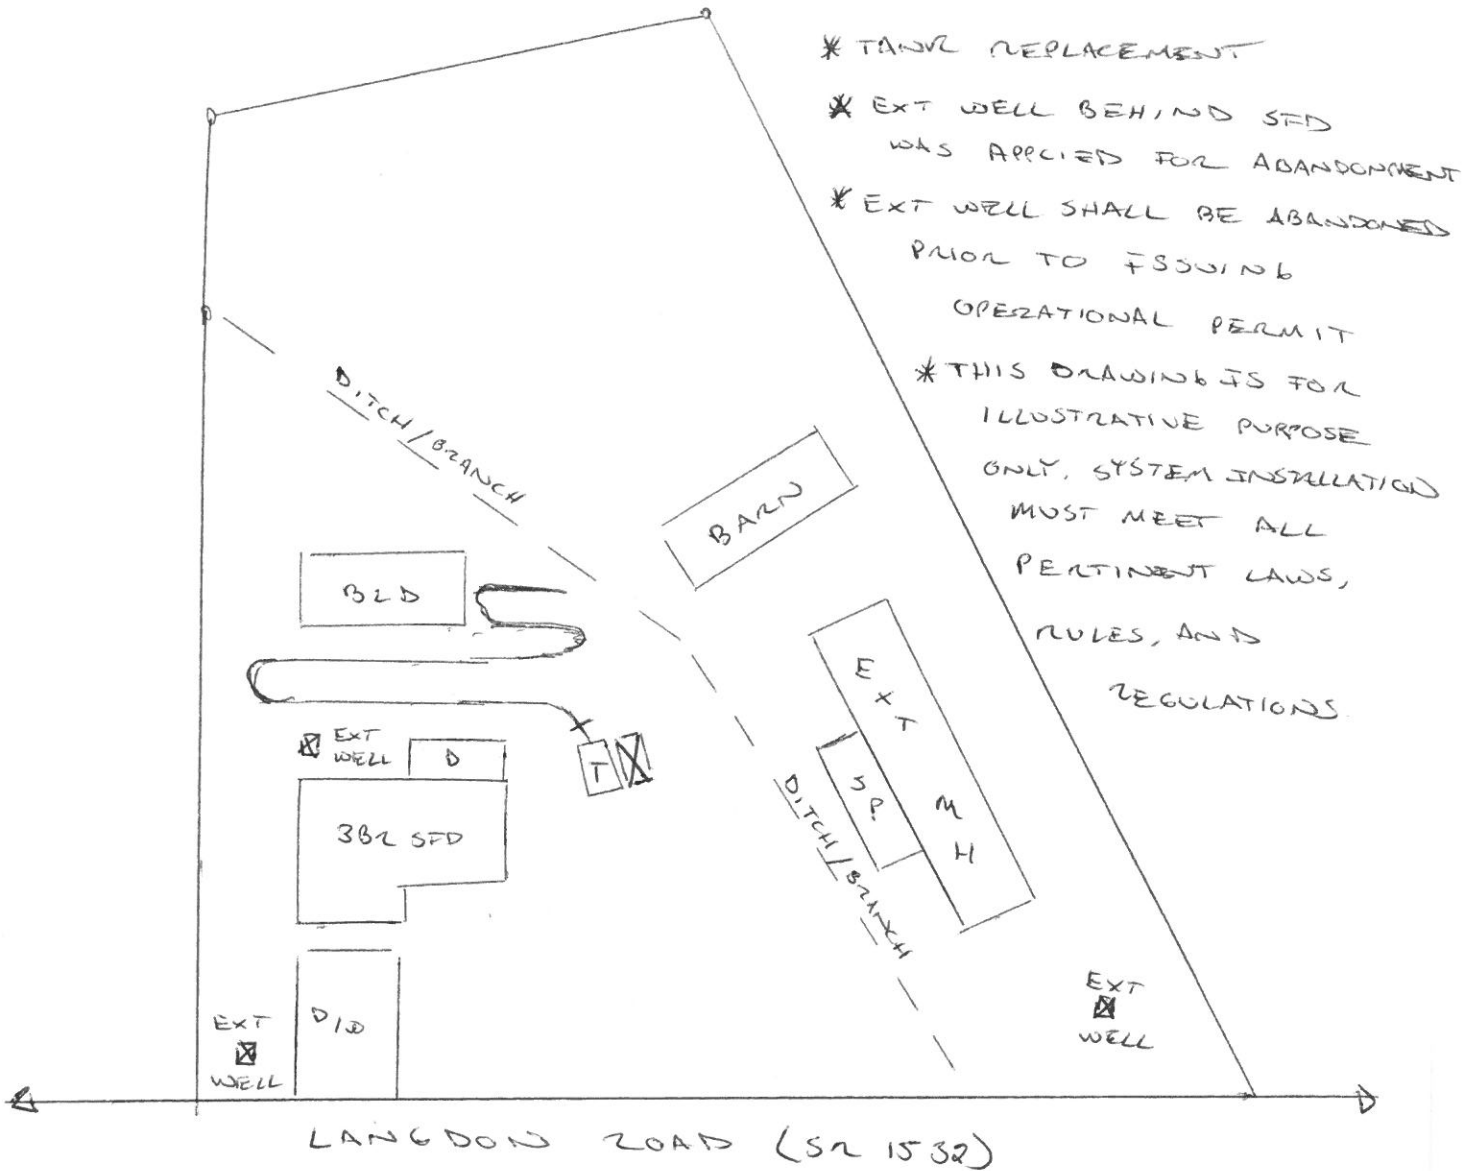 * TANK REPLACEMENT
* EXT WELL BEHIND SFD
WAS APPLIED FOR ABANDONMENT
* EXT WELL SHALL BE ABANDONED
PRIOR TO ISSUING
OPERATIONAL PERMIT
* THIS DRAWING IS FOR
ILLUSTRATIVE PURPOSE
ONLY. SYSTEM INSTALLATION
MUST MEET ALL
PERTINENT LAWS,
RULES, AND
REGULATIONS
DITCH/BRANCH
BARN
BLD
EXT
MH
EXT
WELL
D
T
3BR SFD
DITCH/BRANCH
EXT
WELL
D/W
EXT
WELL
LANGDON ROAD (SR 1532)